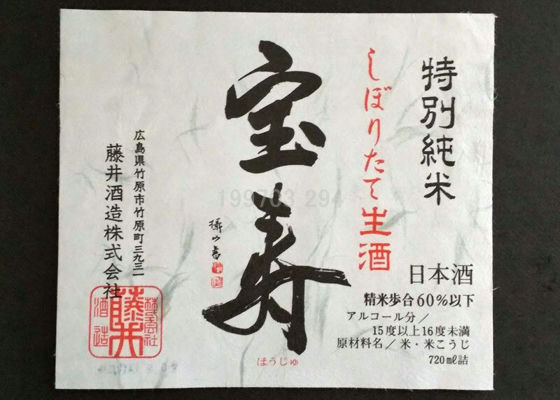 特別純米
しぼりたて生酒
宝寿
ほうじゅ
日本酒
精米歩合60%以下
アルコール分／
15度以上16度未満
原材料名／米・米こうじ
720ml詰
広島県竹原市竹原町三九三一
藤井酒造株式会社
株式会社
藤井
酒造